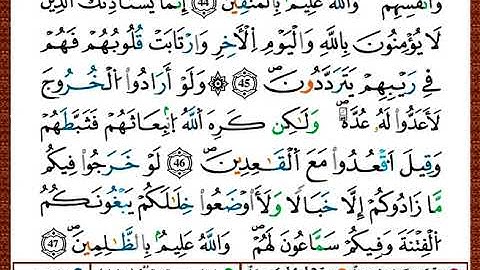 وَأَنفُسِهِمْ ۗ وَٱللَّهُ عَلِيمٌۢ بِٱلْمُتَّقِينَ ۝٤٤ إِنَّمَا يَسْتَـْٔذِنُكَ ٱلَّذِينَ
لَا يُؤْمِنُونَ بِٱللَّهِ وَٱلْيَوْمِ ٱلْـَٔاخِرِ وَٱرْتَابَتْ قُلُوبُهُمْ فَهُمْ
فِى رَيْبِهِمْ يَتَرَدَّدُونَ ۝٤٥ ۞ وَلَوْ أَرَادُوا۟ ٱلْخُرُوجَ
لَأَعَدُّوا۟ لَهُۥ عُدَّةً وَلَٰكِن كَرِهَ ٱللَّهُ ٱنۢبِعَاثَهُمْ فَثَبَّطَهُمْ
وَقِيلَ ٱقْعُدُوا۟ مَعَ ٱلْقَٰعِدِينَ ۝٤٦ لَوْ خَرَجُوا۟ فِيكُم
مَّا زَادُوكُمْ إِلَّا خَبَالًا وَلَأَوْضَعُوا۟ خِلَٰلَكُمْ يَبْغُونَكُمُ
ٱلْفِتْنَةَ وَفِيكُمْ سَمَّٰعُونَ لَهُمْ ۗ وَٱللَّهُ عَلِيمٌۢ بِٱلظَّٰلِمِينَ ۝٤٧